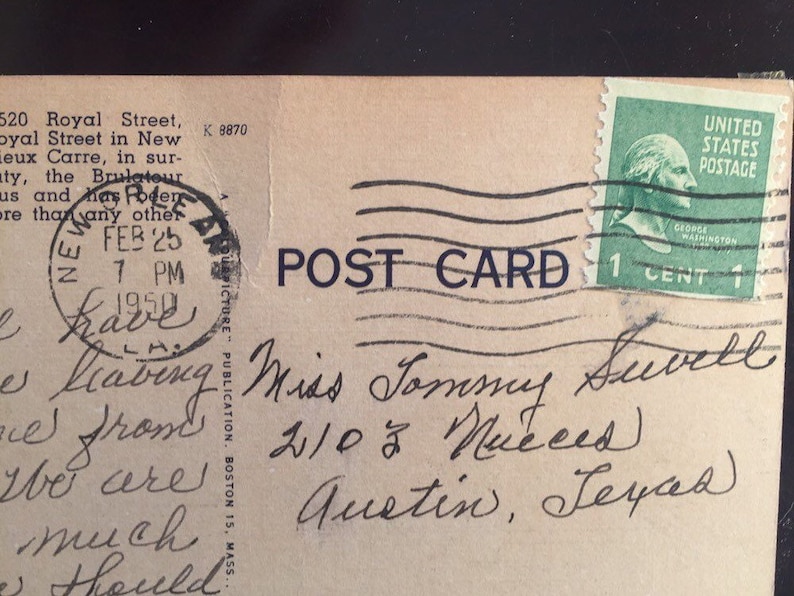 520 Royal Street,
oyal Street in New
ieux Carre, in sur-
uty, the Brulatour
us and has been
ore than any other
K 8870
NEW ORLEANS
FEB 25
7 PM
1950
LA.
UNITED
STATES
POSTAGE
GEORGE
WASHINGTON
1 CENT 1
POST CARD
PICTURE" PUBLICATION. BOSTON 15, MASS.
have
leaving
from
We are
much
should
Miss Tommy
2103 Nueces
Austin, Texas